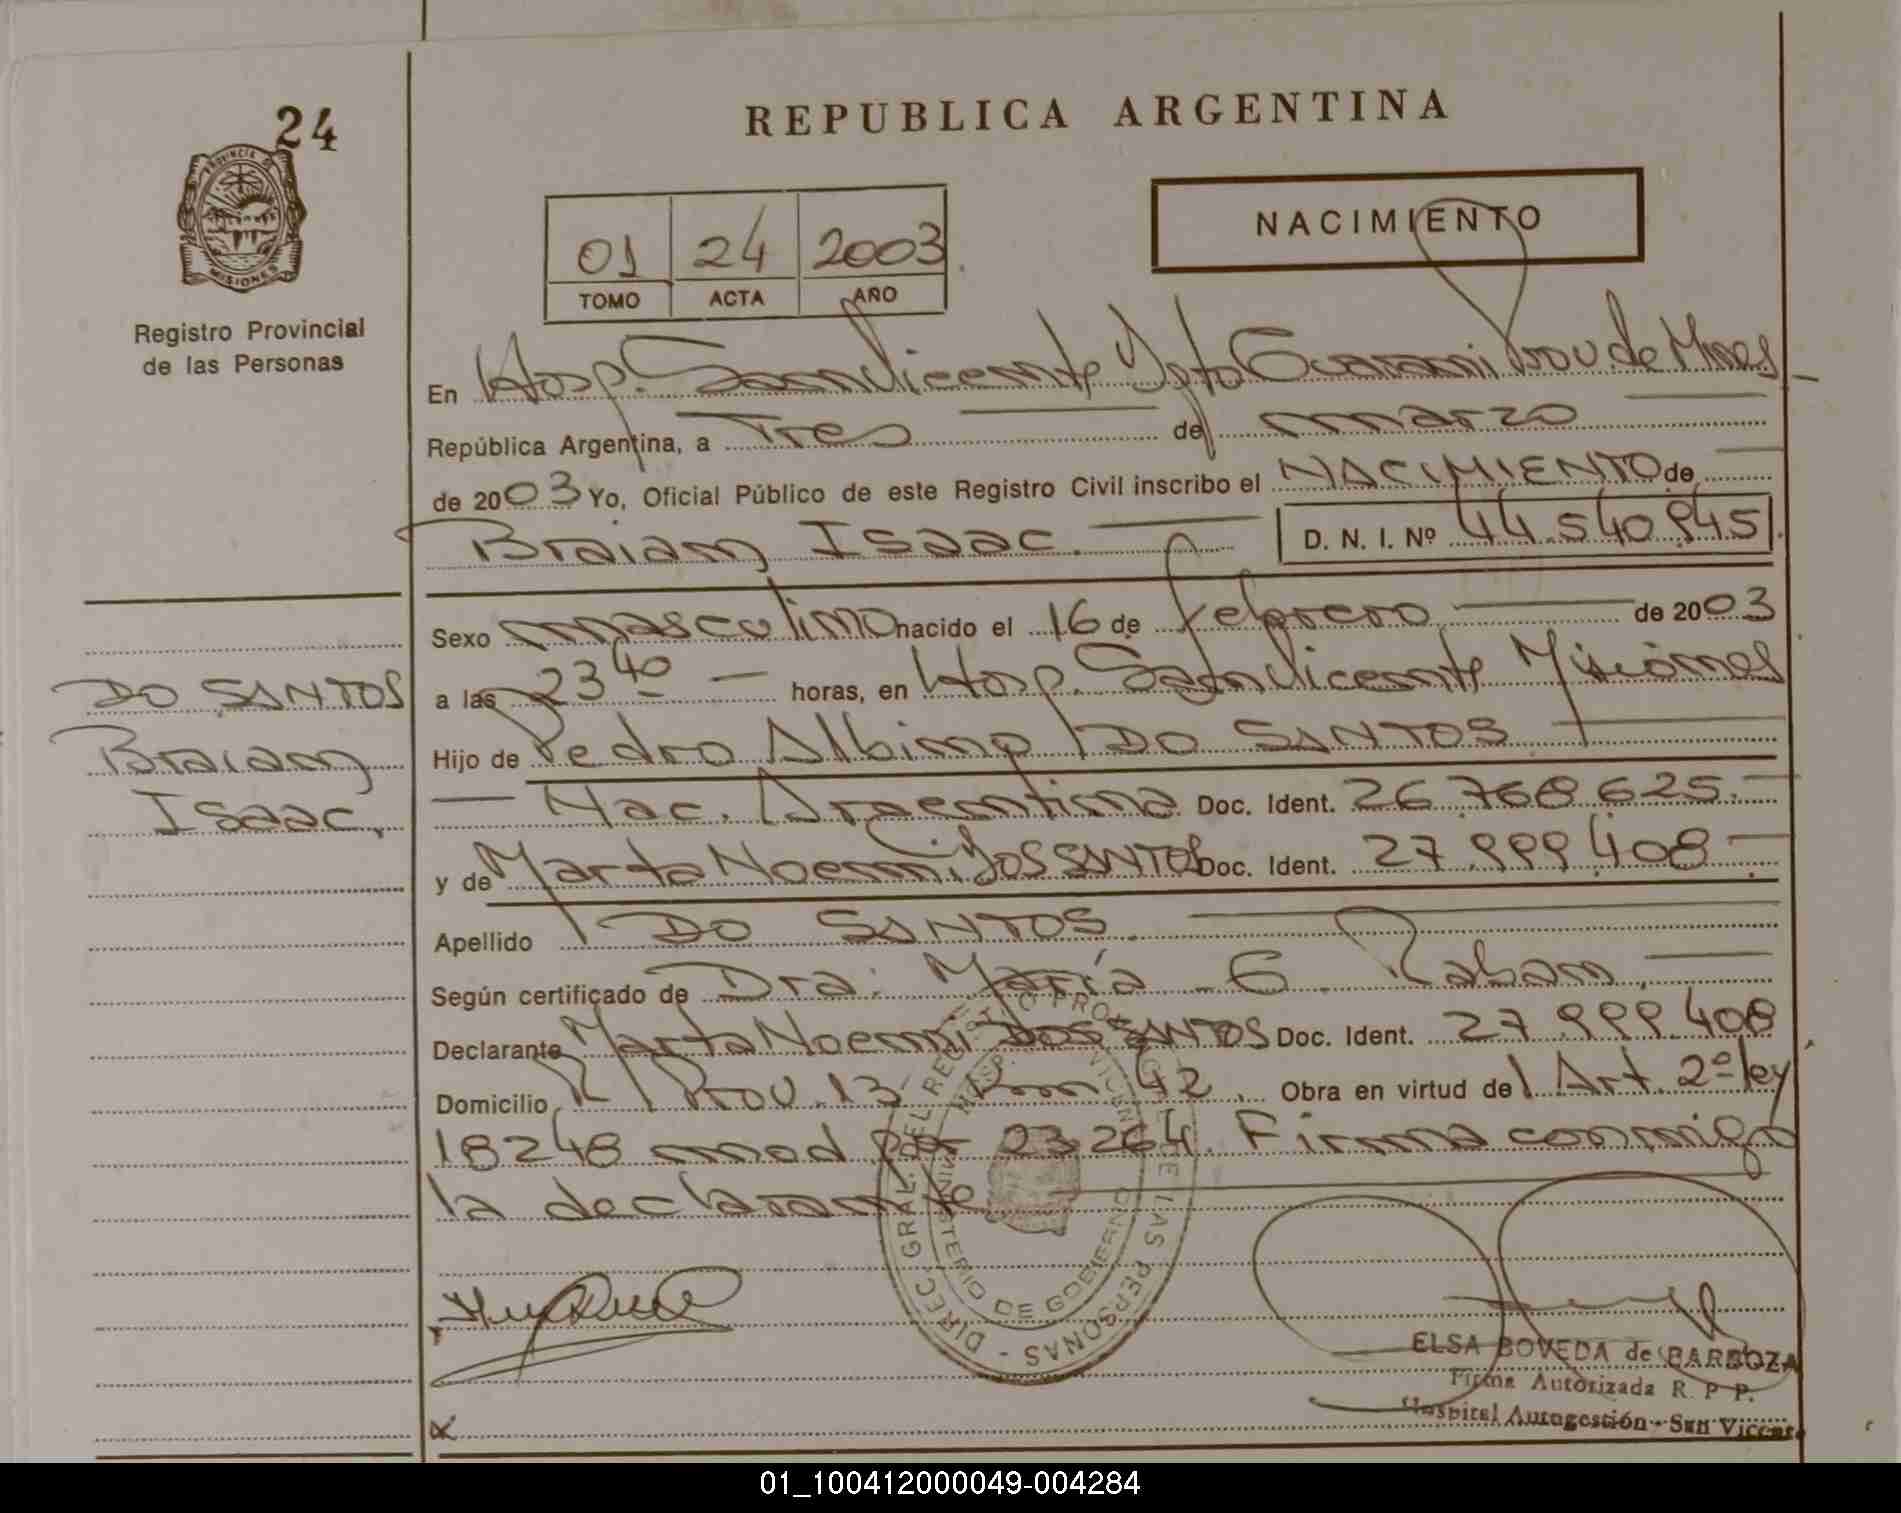 24
PROVINCIA DE
MISIONES
Registro Provincial
de las Personas
REPUBLICA ARGENTINA
01 24 2003
TOMO ACTA AÑO
NACIMIENTO
En Hosp. San Vicente Dpto Guarani Prov. de Mnes
República Argentina, a Tres de marzo
de 2003 Yo, Oficial Público de este Registro Civil inscribo el NACIMIENTO de
Braian Isaac. D. N. I. Nº 44.540.845
Sexo masculino nacido el 16 de febrero de 2003
a las 23 40 horas, en Hosp. San Vicente Misiones
DO SANTOS
Braian
Isaac.
Hijo de Pedro Albino DO SANTOS
Nac. Argentina Doc. Ident. 26.768.625.
y de Marta Noemi DOS SANTOS Doc. Ident. 27.999.408
Apellido DO SANTOS.
Según certificado de Dra. María E. Raban
Declarante Marta Noemi DOS SANTOS Doc. Ident. 27.999.408
Domicilio R/Prov. 13 Km 42. Obra en virtud del Art. 2º ley
18248 mod por 23264. Firma conmigo
la declarante
DIREC. GRAL. DEL REGISTRO PROV. DE LAS PERSONAS -
MINISTERIO DE GOBIERNO
ELSA BOVEDA de BARBOZA
Firma Autorizada R. P. P.
Hospital Autogestión - San Vicente
01_100412000049-004284